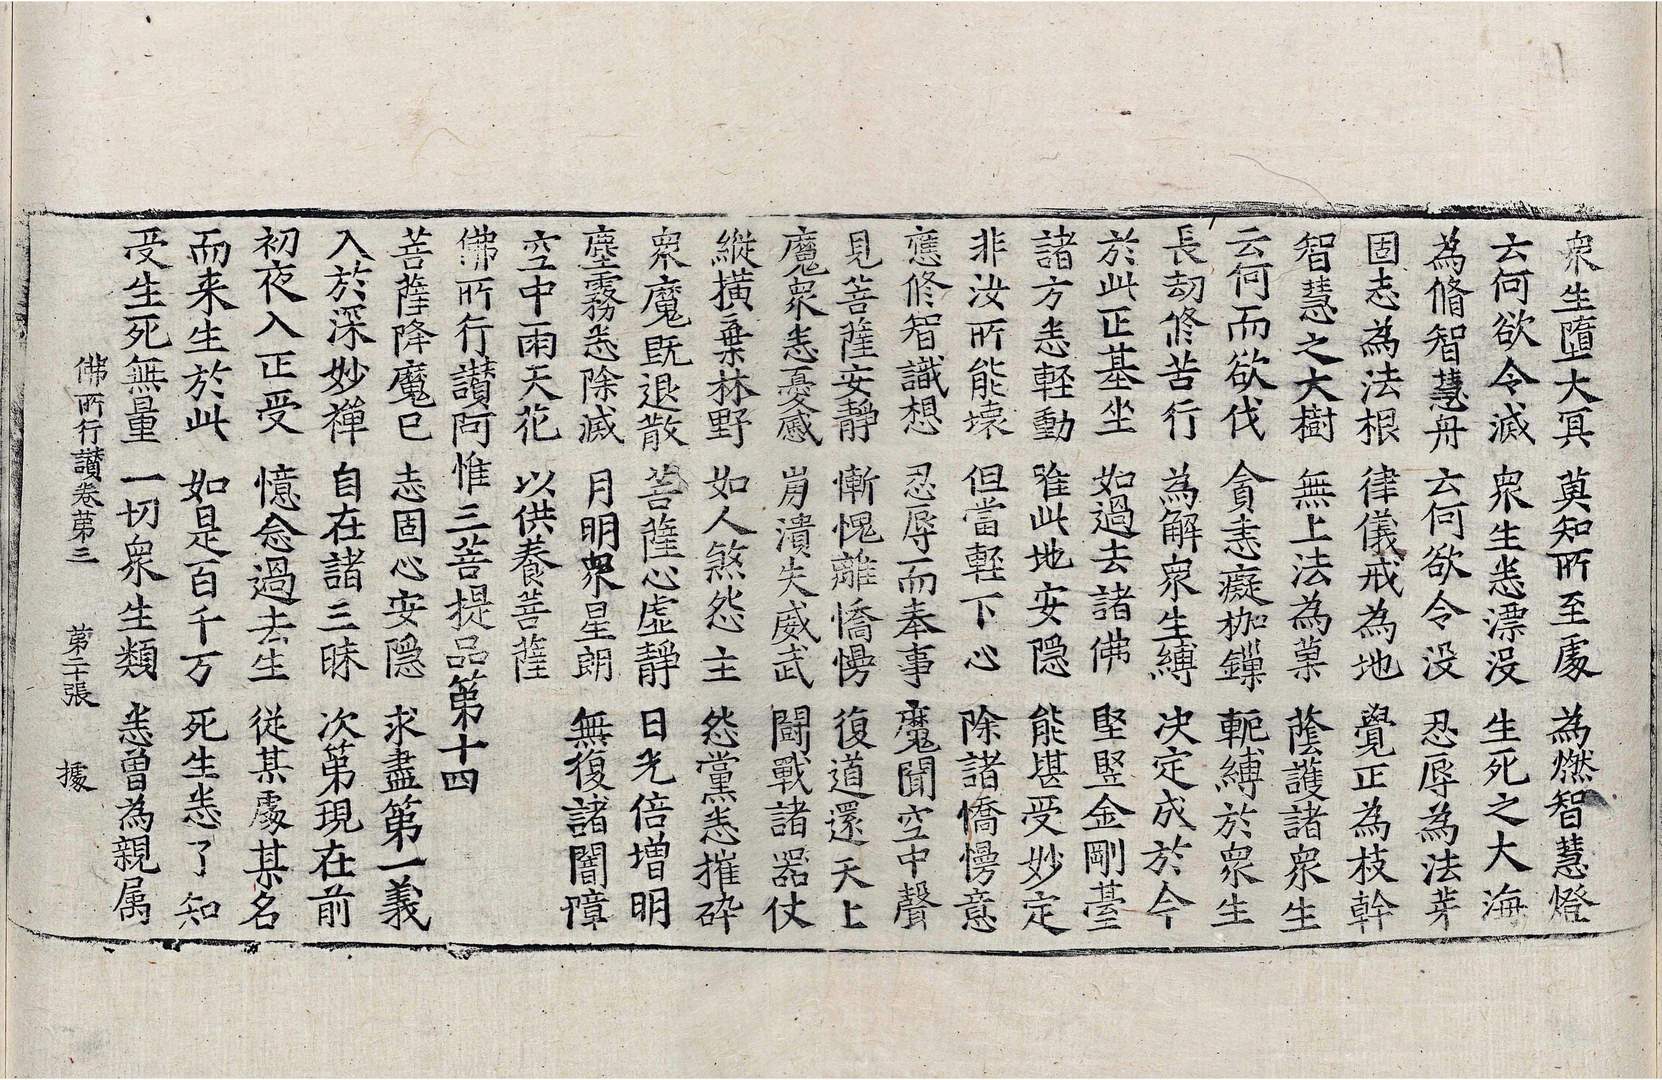 衆生墮大冥 莫知所至處 為燃智慧燈
云何欲令滅 衆生悉漂没 生死之大海
為脩智慧舟 云何欲令没 忍辱為法芽
固志為法根 律儀戒為地 覺正為枝幹
智慧之大樹 無上法為菓 蔭護諸衆生
云何而欲伐 貪恚癡枷鏁 軛縛於衆生
長劫修苦行 為解衆生縛 决定成於今
於此正基坐 如過去諸佛 堅竪金剛臺
諸方悉輕動 唯此地安隱 能堪受妙定
非汝所能壞 但當輕下心 除諸憍慢意
應修智識想 忍辱而奉事 魔聞空中聲
見菩薩安靜 慚愧離憍慢 復道還天上
魔衆悉憂慼 崩潰失威武 鬪戰諸器仗
縱橫棄林野 如人煞怨主 怨黨悉摧碎
衆魔既退散 菩薩心虛靜 日光倍增明
塵霧悉除滅 月明衆星朗 無復諸闇障
空中雨天花 以供養菩薩
佛所行讃阿惟三菩提品第十四
菩薩降魔已 志固心安隱 求盡第一義
入於深妙禪 自在諸三昧 次第現在前
初夜入正受 憶念過去生 從某處某名
而来生於此 如是百千万 死生悉了知
受生死無量 一切衆生類 悉曾為親属
佛所行讃卷第三 第二十張 據